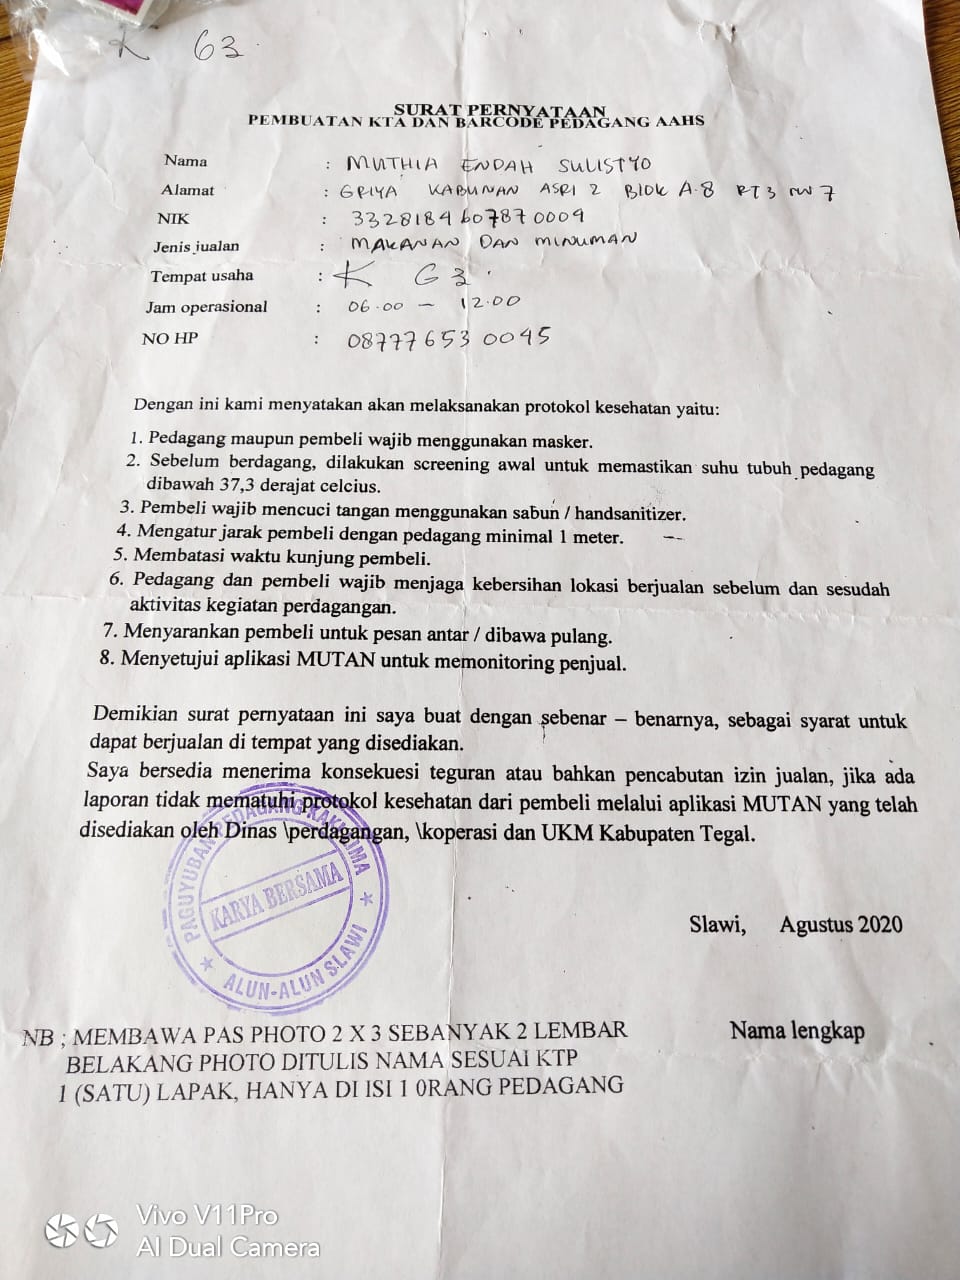 K 63
SURAT PERNYATAAN
PEMBUATAN KTA DAN BARCODE PEDAGANG AAHS
Nama : MUTHIA ENDAH SULISTYO
Alamat : GRIYA KABUNAN ASRI 2 BLOK A.8 RT3 RW 7
NIK : 3328184607870009
Jenis jualan : MAKANAN DAN MINUMAN
Tempat usaha : K 63
Jam operasional : 06.00 - 12.00
NO HP : 087776530045
Dengan ini kami menyatakan akan melaksanakan protokol kesehatan yaitu:
1. Pedagang maupun pembeli wajib menggunakan masker.
2. Sebelum berdagang, dilakukan screening awal untuk memastikan suhu tubuh pedagang
dibawah 37,3 derajat celcius.
3. Pembeli wajib mencuci tangan menggunakan sabun / handsanitizer.
4. Mengatur jarak pembeli dengan pedagang minimal 1 meter.
5. Membatasi waktu kunjung pembeli.
6. Pedagang dan pembeli wajib menjaga kebersihan lokasi berjualan sebelum dan sesudah
aktivitas kegiatan perdagangan.
7. Menyarankan pembeli untuk pesan antar / dibawa pulang.
8. Menyetujui aplikasi MUTAN untuk memonitoring penjual.
Demikian surat pernyataan ini saya buat dengan sebenar – benarnya, sebagai syarat untuk
dapat berjualan di tempat yang disediakan.
Saya bersedia menerima konsekuesi teguran atau bahkan pencabutan izin jualan, jika ada
laporan tidak mematuhi protokol kesehatan dari pembeli melalui aplikasi MUTAN yang telah
disediakan oleh Dinas \perdagangan, \koperasi dan UKM Kabupaten Tegal.
PAGUYUBAN PEDAGANG KAKI LIMA
KARYA BERSAMA
ALUN-ALUN SLAWI
Slawi, Agustus 2020
Nama lengkap
NB ; MEMBAWA PAS PHOTO 2 X 3 SEBANYAK 2 LEMBAR
BELAKANG PHOTO DITULIS NAMA SESUAI KTP
1 (SATU) LAPAK, HANYA DI ISI 1 0RANG PEDAGANG
Vivo V11Pro
AI Dual Camera